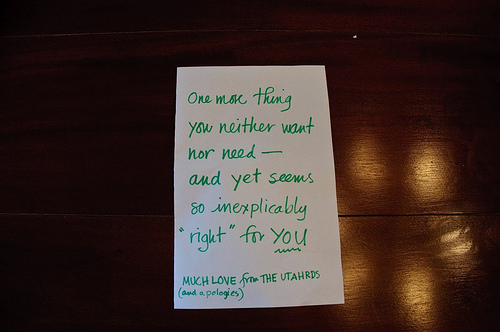 One more thing
you neither want
nor need —
and yet seems
so inexplicably
"right" for YOU
MUCH LOVE from THE UTAHRDS
(and apologies)